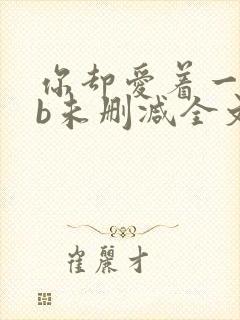 你却爱着一
b未删减全文
崔丽才